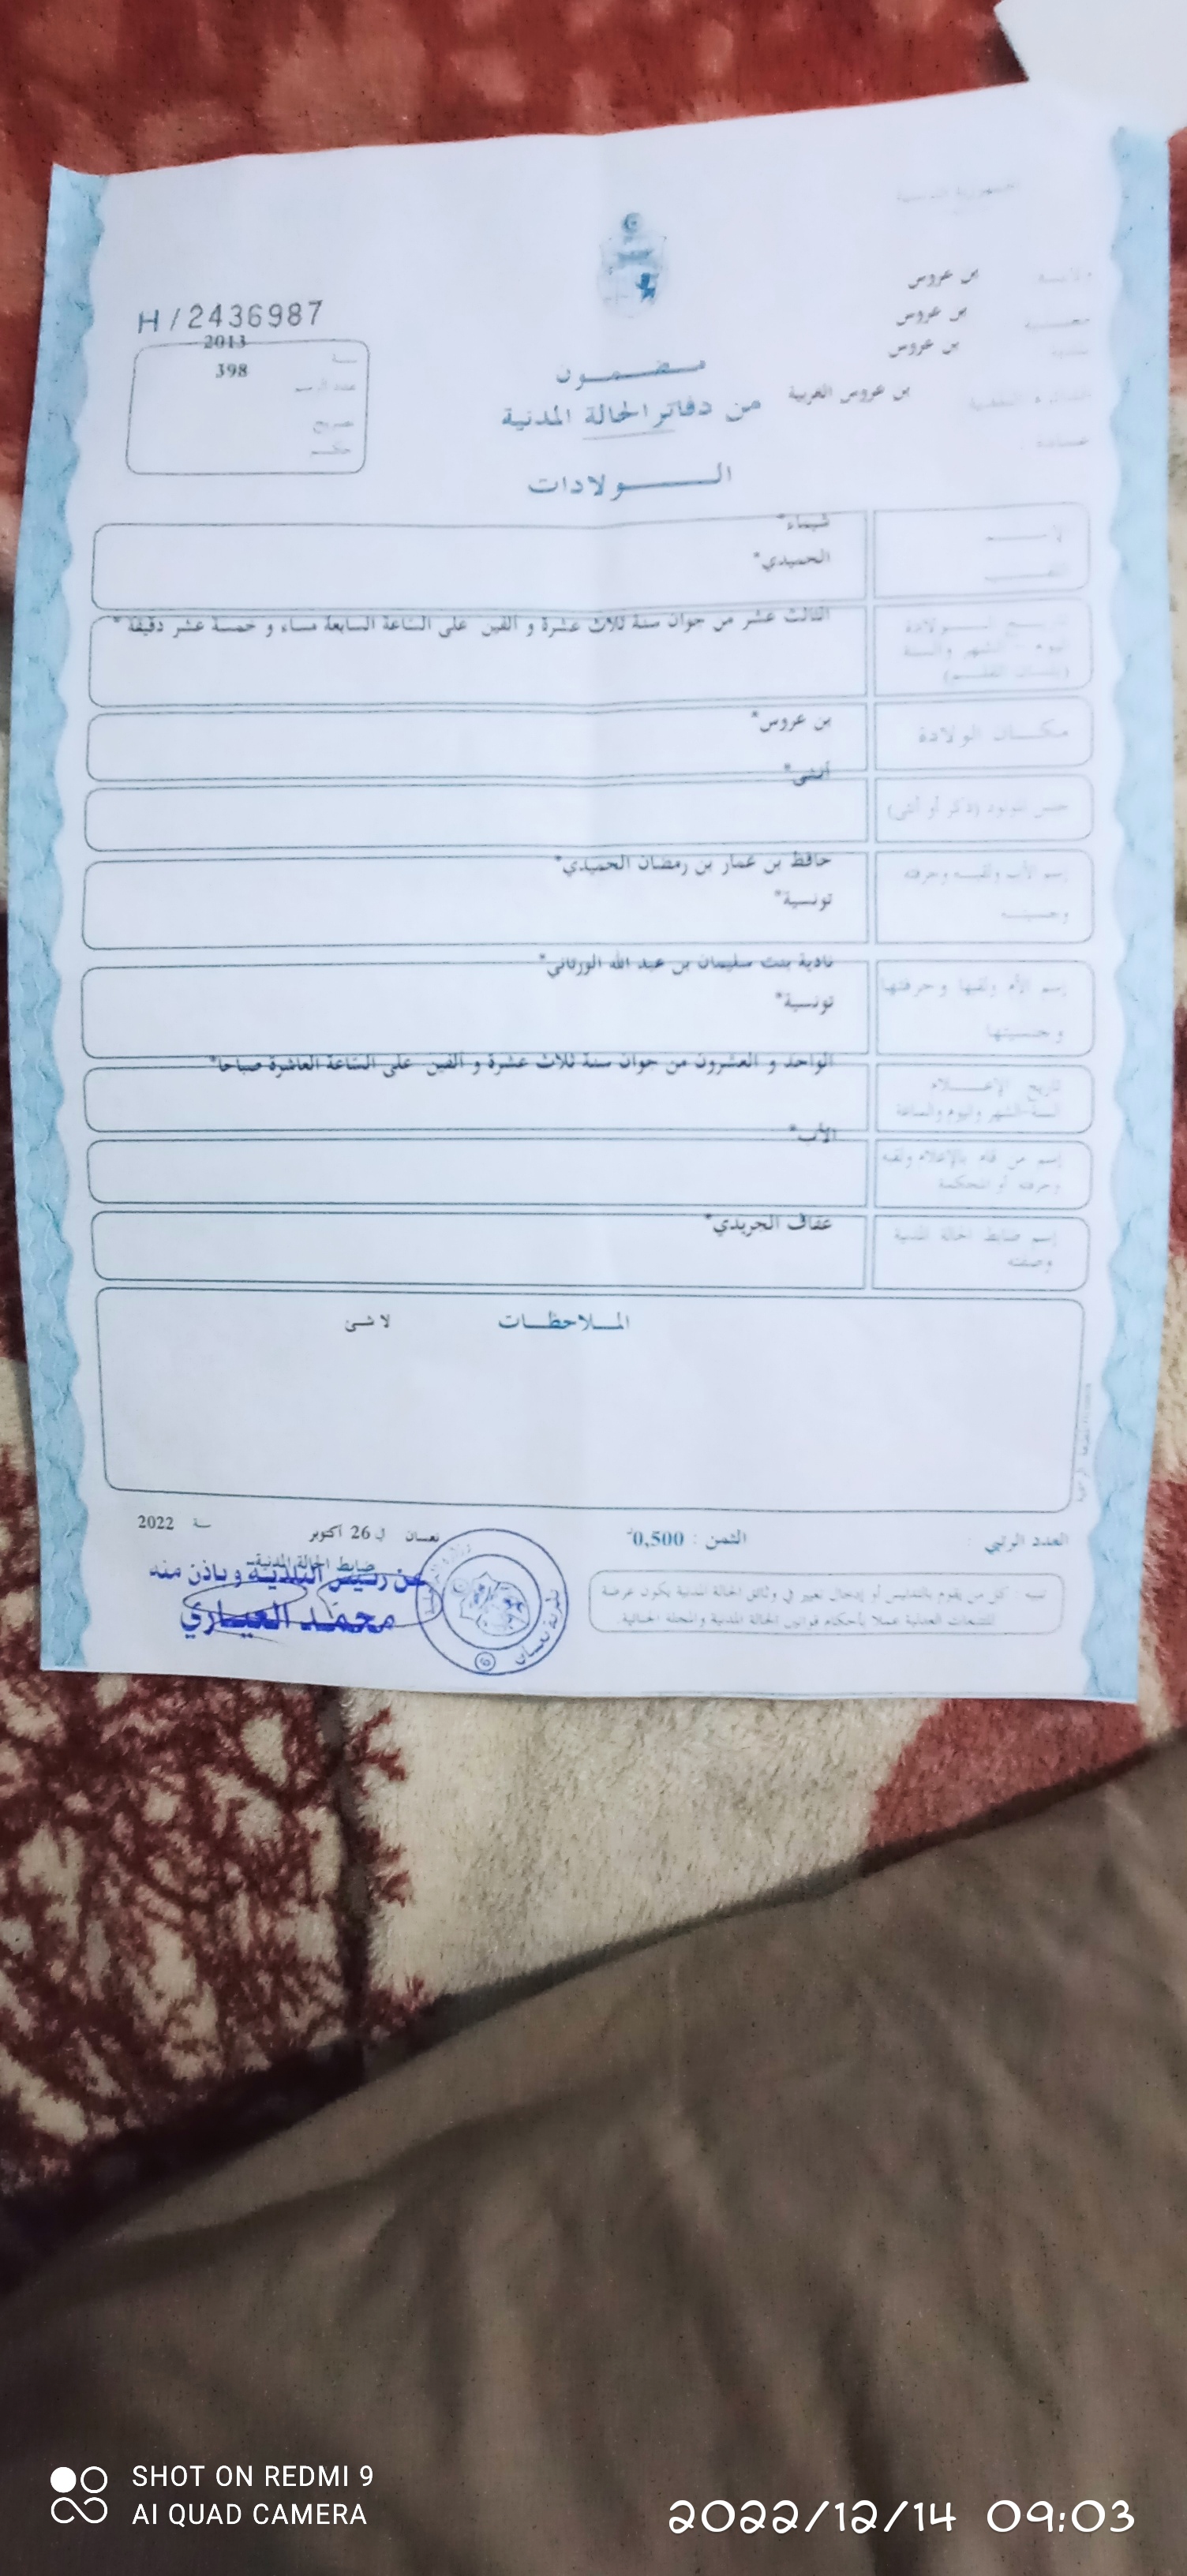 الجمهورية التونسية
بن عروس
بن عروس
بن عروس
بن عروس الغربية
H/2436987
سنة 2013
عدد الرسم 398
تصريح
حكم
مضمون
من دفاتر الحالة المدنية
الولادات
الإسم شيماء*
اللقب الحميدي*
تاريخ الولادة الثالث عشر من جوان سنة ثلاث عشرة و ألفين على الساعة السابعة مساء و خمسة عشر دقيقة*
اليوم - الشهر والسنة
(بلسان القلم)
مكان الولادة بن عروس*
جنس المولود (ذكر أو أنثى) أنثى*
إسم الأب ولقبه وحرفته حافظ بن عمار بن رمضان الحميدي*
وجنسيته تونسية*
إسم الأم ولقبها وحرفتها نادية بنت سليمان بن عبد الله الورتاني*
وجنسيتها تونسية*
تاريخ الإعلام الواحد و العشرون من جوان سنة ثلاث عشرة و ألفين على الساعة العاشرة صباحا*
السنة-الشهر واليوم والساعة
إسم من قام بالإعلام ولقبه الأب*
وحرفته أو المحكمة
إسم ضابط الحالة المدنية عفاف الجريدي*
وصفته
الملاحظات لا شئ
العدد الرتبي :
الثمن : 0,500د
نعسان في 26 أكتوبر سنة 2022
ضابط الحالة المدنية
عن رئيس البلدية وبإذن منه
محمد العياري
بلدية نعسان
تنبيه - كل من يقوم بالتدليس أو إدخال تغيير في وثائق الحالة المدنية يكون عرضة
للتتبعات العدلية عملا بأحكام قوانين الحالة المدنية والمجلة الجنائية
SHOT ON REDMI 9
AI QUAD CAMERA
2022/12/14 09:03